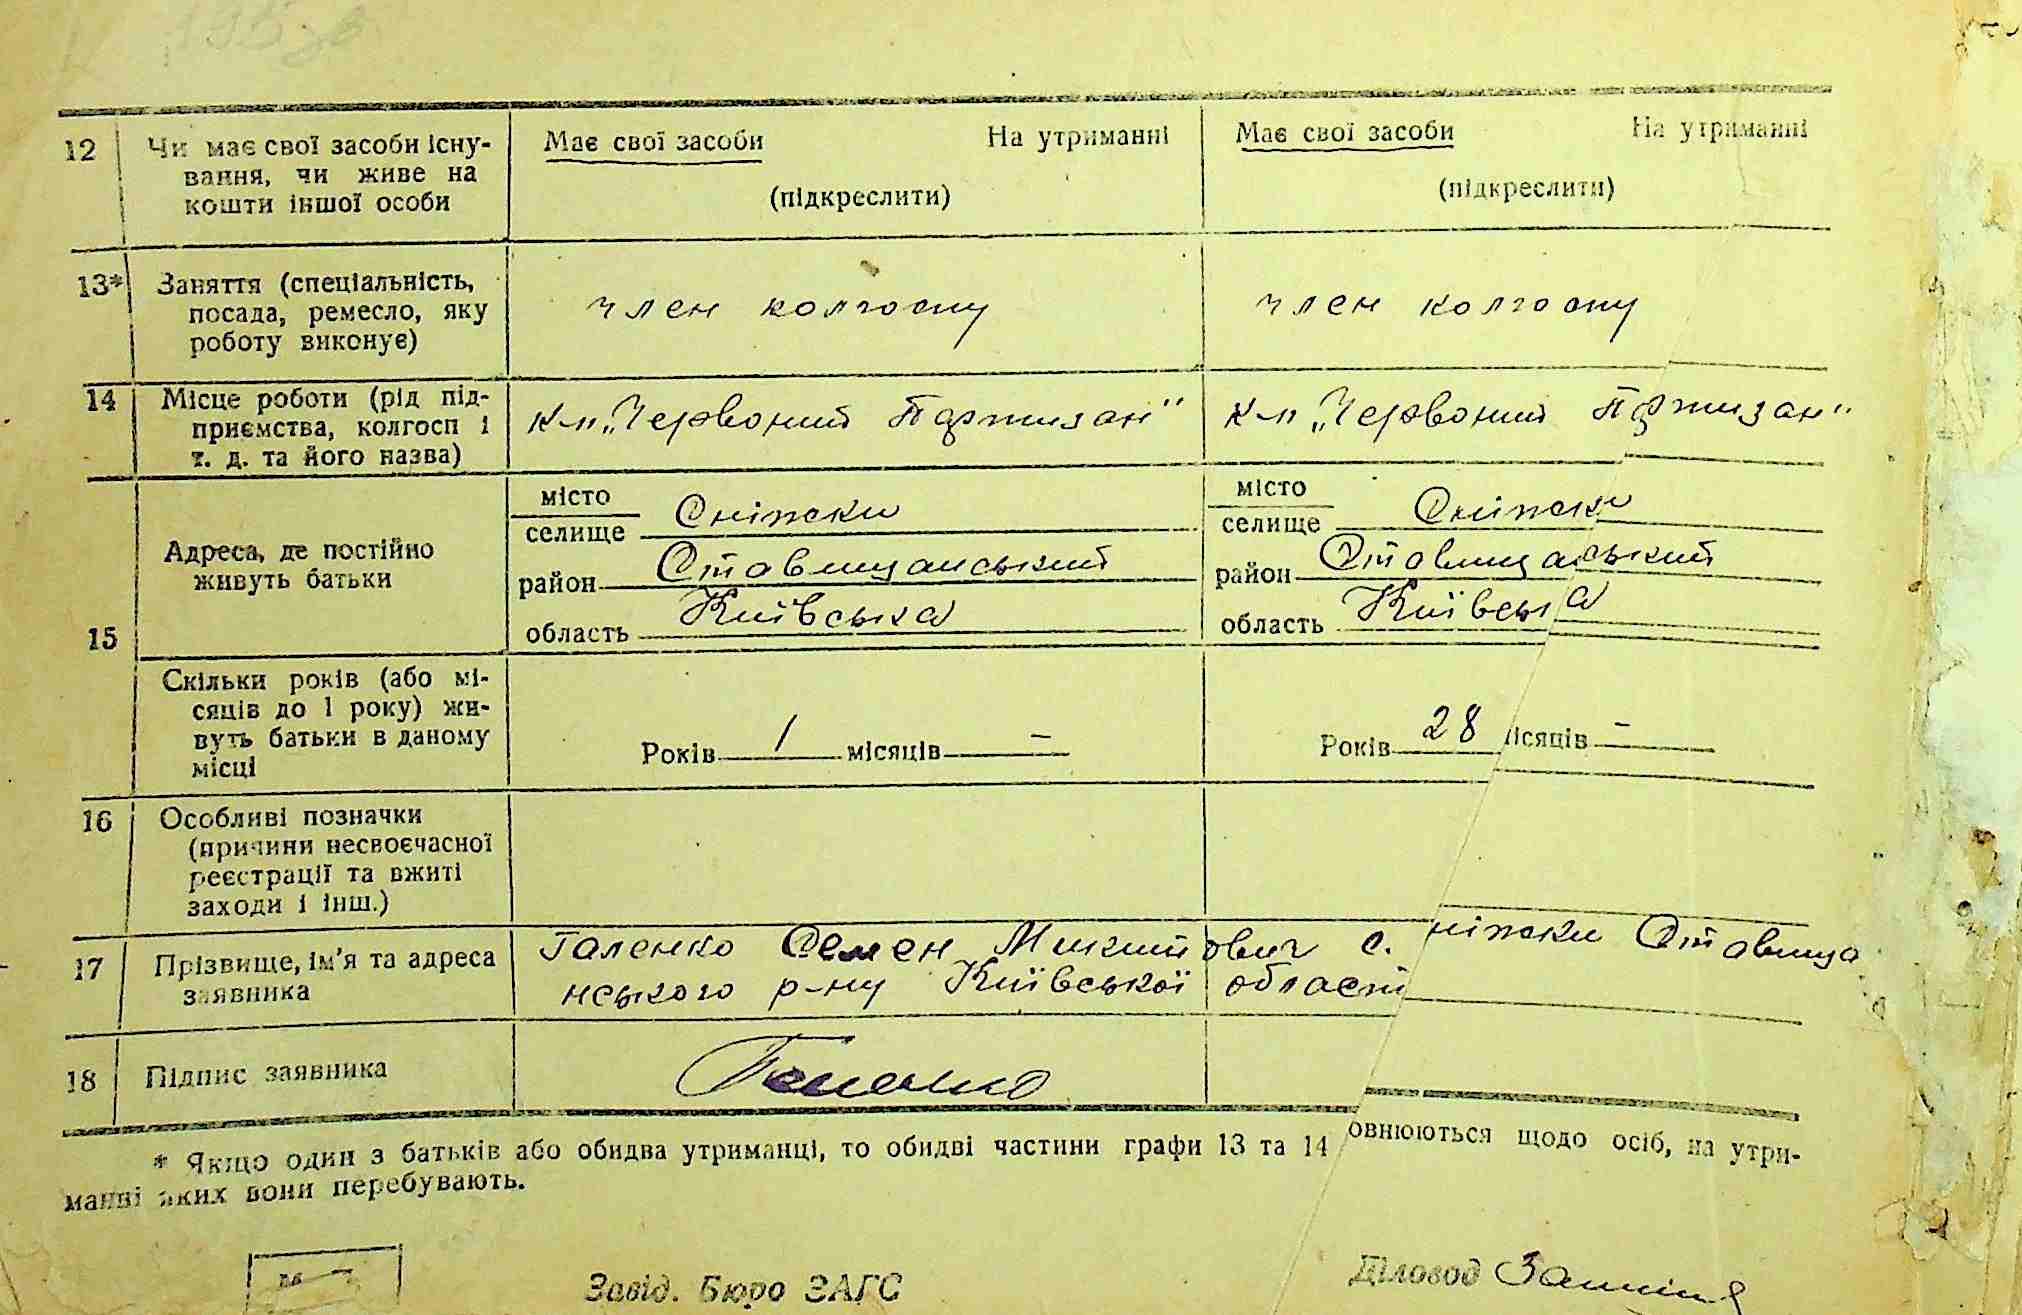 12 Чи має свої засоби існу- Має свої засоби На утриманні Має свої засоби На утриманні
вання, чи живе на
кошти іншої особи (підкреслити) (підкреслити)
13* Заняття (спеціальність,
посада, ремесло, яку член колгоспу член колгоспу
роботу виконує)
14 Місце роботи (рід під-
приємства, колгосп і к-п „Червоний Партизан" к-п „Червоний Партизан"
т. д. та його назва)
місто місто
селище Сніжки селище Сніжки
Адреса, де постійно
живуть батьки район Ставищанський район Ставищанський
15 область Київська область Київська
Скільки років (або мі-
сяців до 1 року) жи-
вуть батьки в даному Років 1 місяців – Років 28 місяців –
місці
16 Особливі позначки
(причини несвоєчасної
реєстрації та вжиті
заходи і інш.)
17 Прізвище, ім'я та адреса Галенко Семен Микитович с. ніжки Ставища
заявника нського р-ну Київської області
18 Підпис заявника Галенко
* Якщо один з батьків або обидва утриманці, то обидві частини графи 13 та 14 овнюються щодо осіб, на утри-
манні яких вони перебувають.
Завід. Бюро ЗАГС Діловод